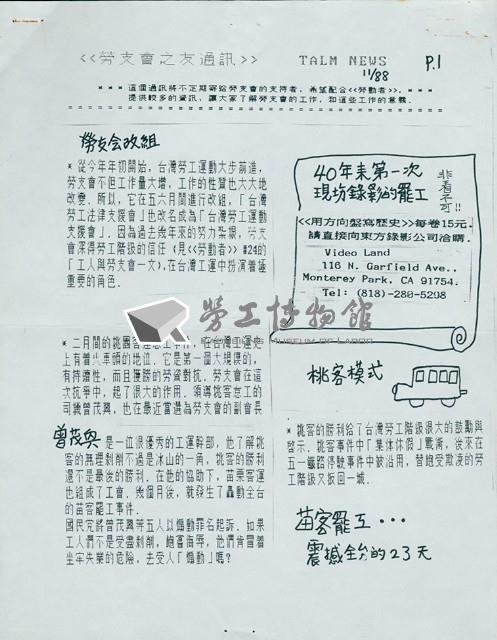 <<勞支會之友通訊>> TALM NEWS P.1
11/88
*** 這個通訊將不定期寄給勞支會的支持者, 希望配合<<勞動者>>, ***
提供較多的資訊, 讓大家了解勞支會的工作, 和這些工作的意義.
勞支会改組
* 從今年年初開始, 台灣勞工運動大步前進,
勞支會不但工作量大增, 工作的性質也大大地
改變. 所以, 它在五六月間進行改組, 「台灣勞
工法律支援會」也改名成為「台灣勞工運動
支援會」. 因為過去幾年來的努力紮根, 勞支
會深得勞工階級的信任 (見<<勞動者>> #24的
「工人與勞支會一文), 在台灣工運中扮演著極
重要的角色.
* 二月間的桃園客運怠工事件, 在台灣工運史
上有著火車頭的地位. 它是第一個大規模的,
有持續性, 而且獲勝的勞資對抗. 勞支會在這
次抗爭中, 起了很大的作用. 領導桃客怠工的
司機曾茂興, 也在最近當選為勞支會的副會長
曾茂興 是一位很優秀的工運幹部, 他了解桃
客的無理剝削不過是冰山的一角, 桃客的勝利
還不是最後的勝利. 在他的協助下, 苗栗客運
也組成了工會. 幾個月後, 就發生了轟動全台
的苗客罷工事件.
國民党將曾茂興等五人以煽動罪名起訴. 如果
工人們不是受盡剝削, 飽嘗侮辱, 他們肯冒着
坐牢失業的危險, 去受人「煽動」嗎?
40年来第一次
現場錄影的罷工
非看不可!!
<<用方向盤寫歷史>> 每卷15元.
請直接向東方錄影公司洽購.
Video Land
116 N. Garfield Ave.,
Monterey Park, CA 91754.
Tel: (818)-280-5298
勞工博物館
MUSEUM OF LABOR
桃客模式
* 桃客的勝利給了台灣勞工階級很大的鼓勵與
啓示. 桃客事件中「集体休假」戰術, 後來在
五一鐵路停駛事件中被沿用, 替飽受欺凌的勞
工階級又扳回一城.
苗客罷工···
震撼全台的23天